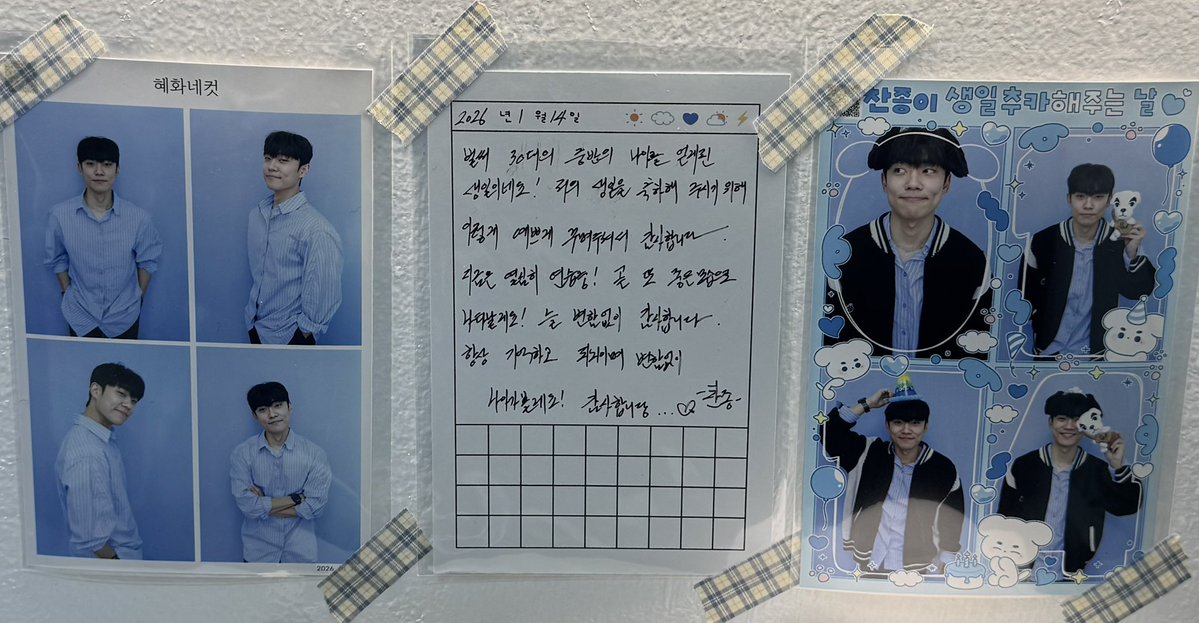 혜화네컷
2026
2026 년 1 월 14 일
벌써 30대의 중반의 나이란 언제진
생일이네요! 저의 생일을 축하해 주시기 위해
이렇게 예쁘게 꾸며주셔서 감사합니다.
지금은 열심히 연습중! 곧 또 좋은 모습으로
나타날게요! 늘 변함없이 감사합니다.
항상 기억하고 되뇌이며 변함없이
나아가볼게요! 감사합니다...♡
-찬종-
찬종이 생일 추카해주는 날